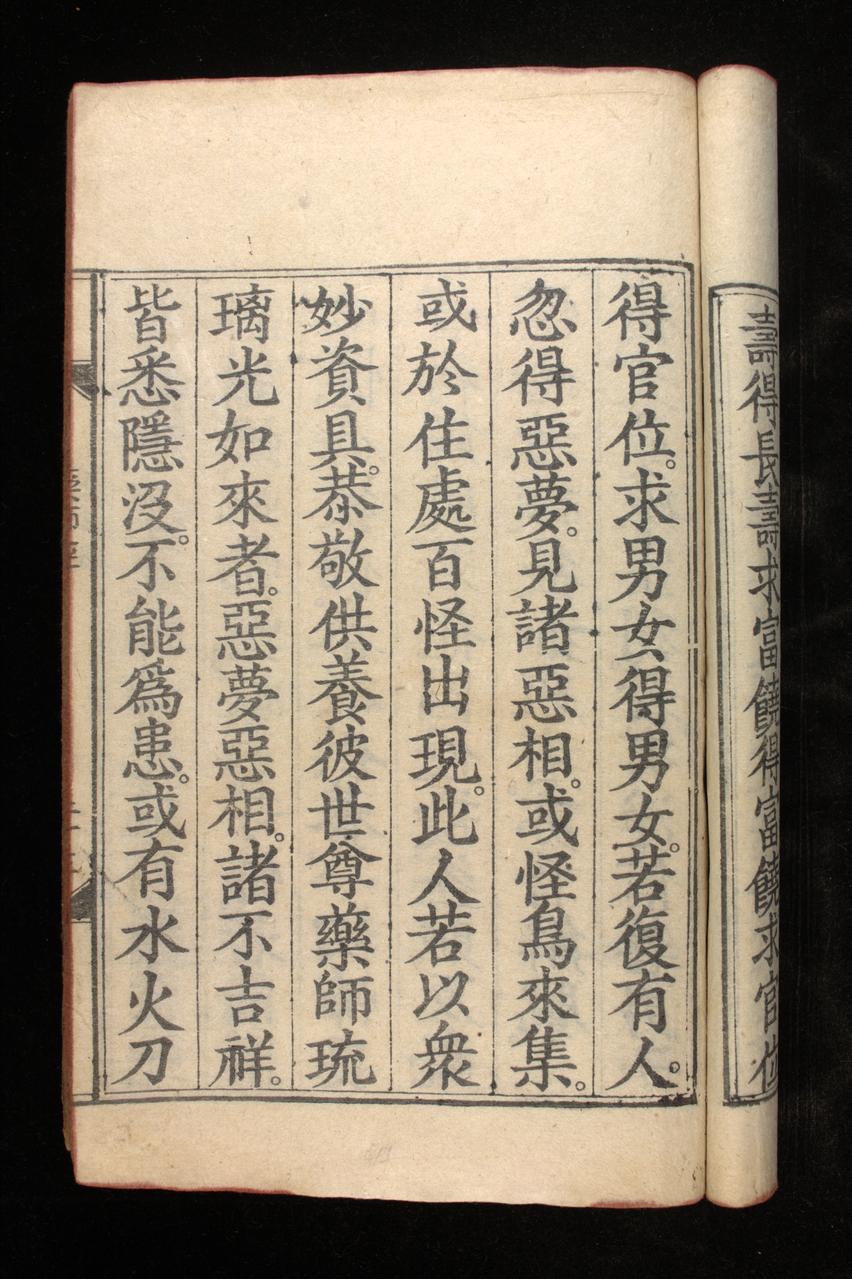 壽得長壽求富饒得富饒求官位
得官位。求男女得男女。若復有人。
忽得惡夢。見諸惡相。或怪鳥來集。
或於住處百怪出現。此人若以衆
妙資具。恭敬供養彼世尊藥師琉
璃光如來者。惡夢惡相。諸不吉祥。
皆悉隱沒。不能爲患。或有水火刀